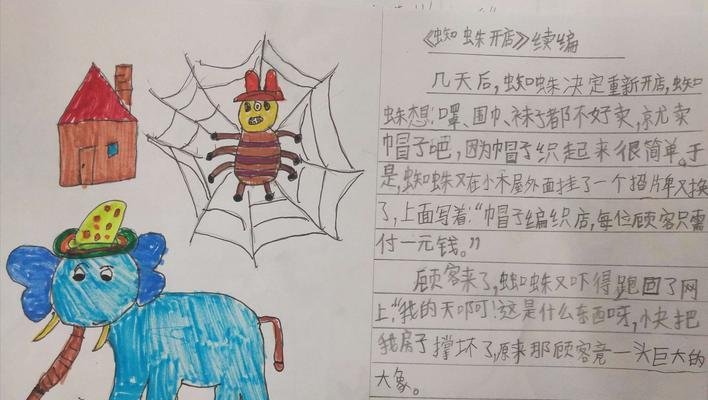 《蜘蛛开店》续编
几天后，蜘蛛决定重新开店，蜘
蛛想：口罩、围巾、袜子都不好卖，就卖
帽子吧，因为帽子织起来很简单。于
是，蜘蛛又在小木屋外面挂了一个招牌又换
了，上面写着：“帽子编织店，每位顾客只需
付一元钱。”
顾客来了，蜘蛛又吓得跑回了网
上，“我的天啊！这是什么东西呀，快把
我房子撑坏了，原来那顾客竟一头巨大的
大象。